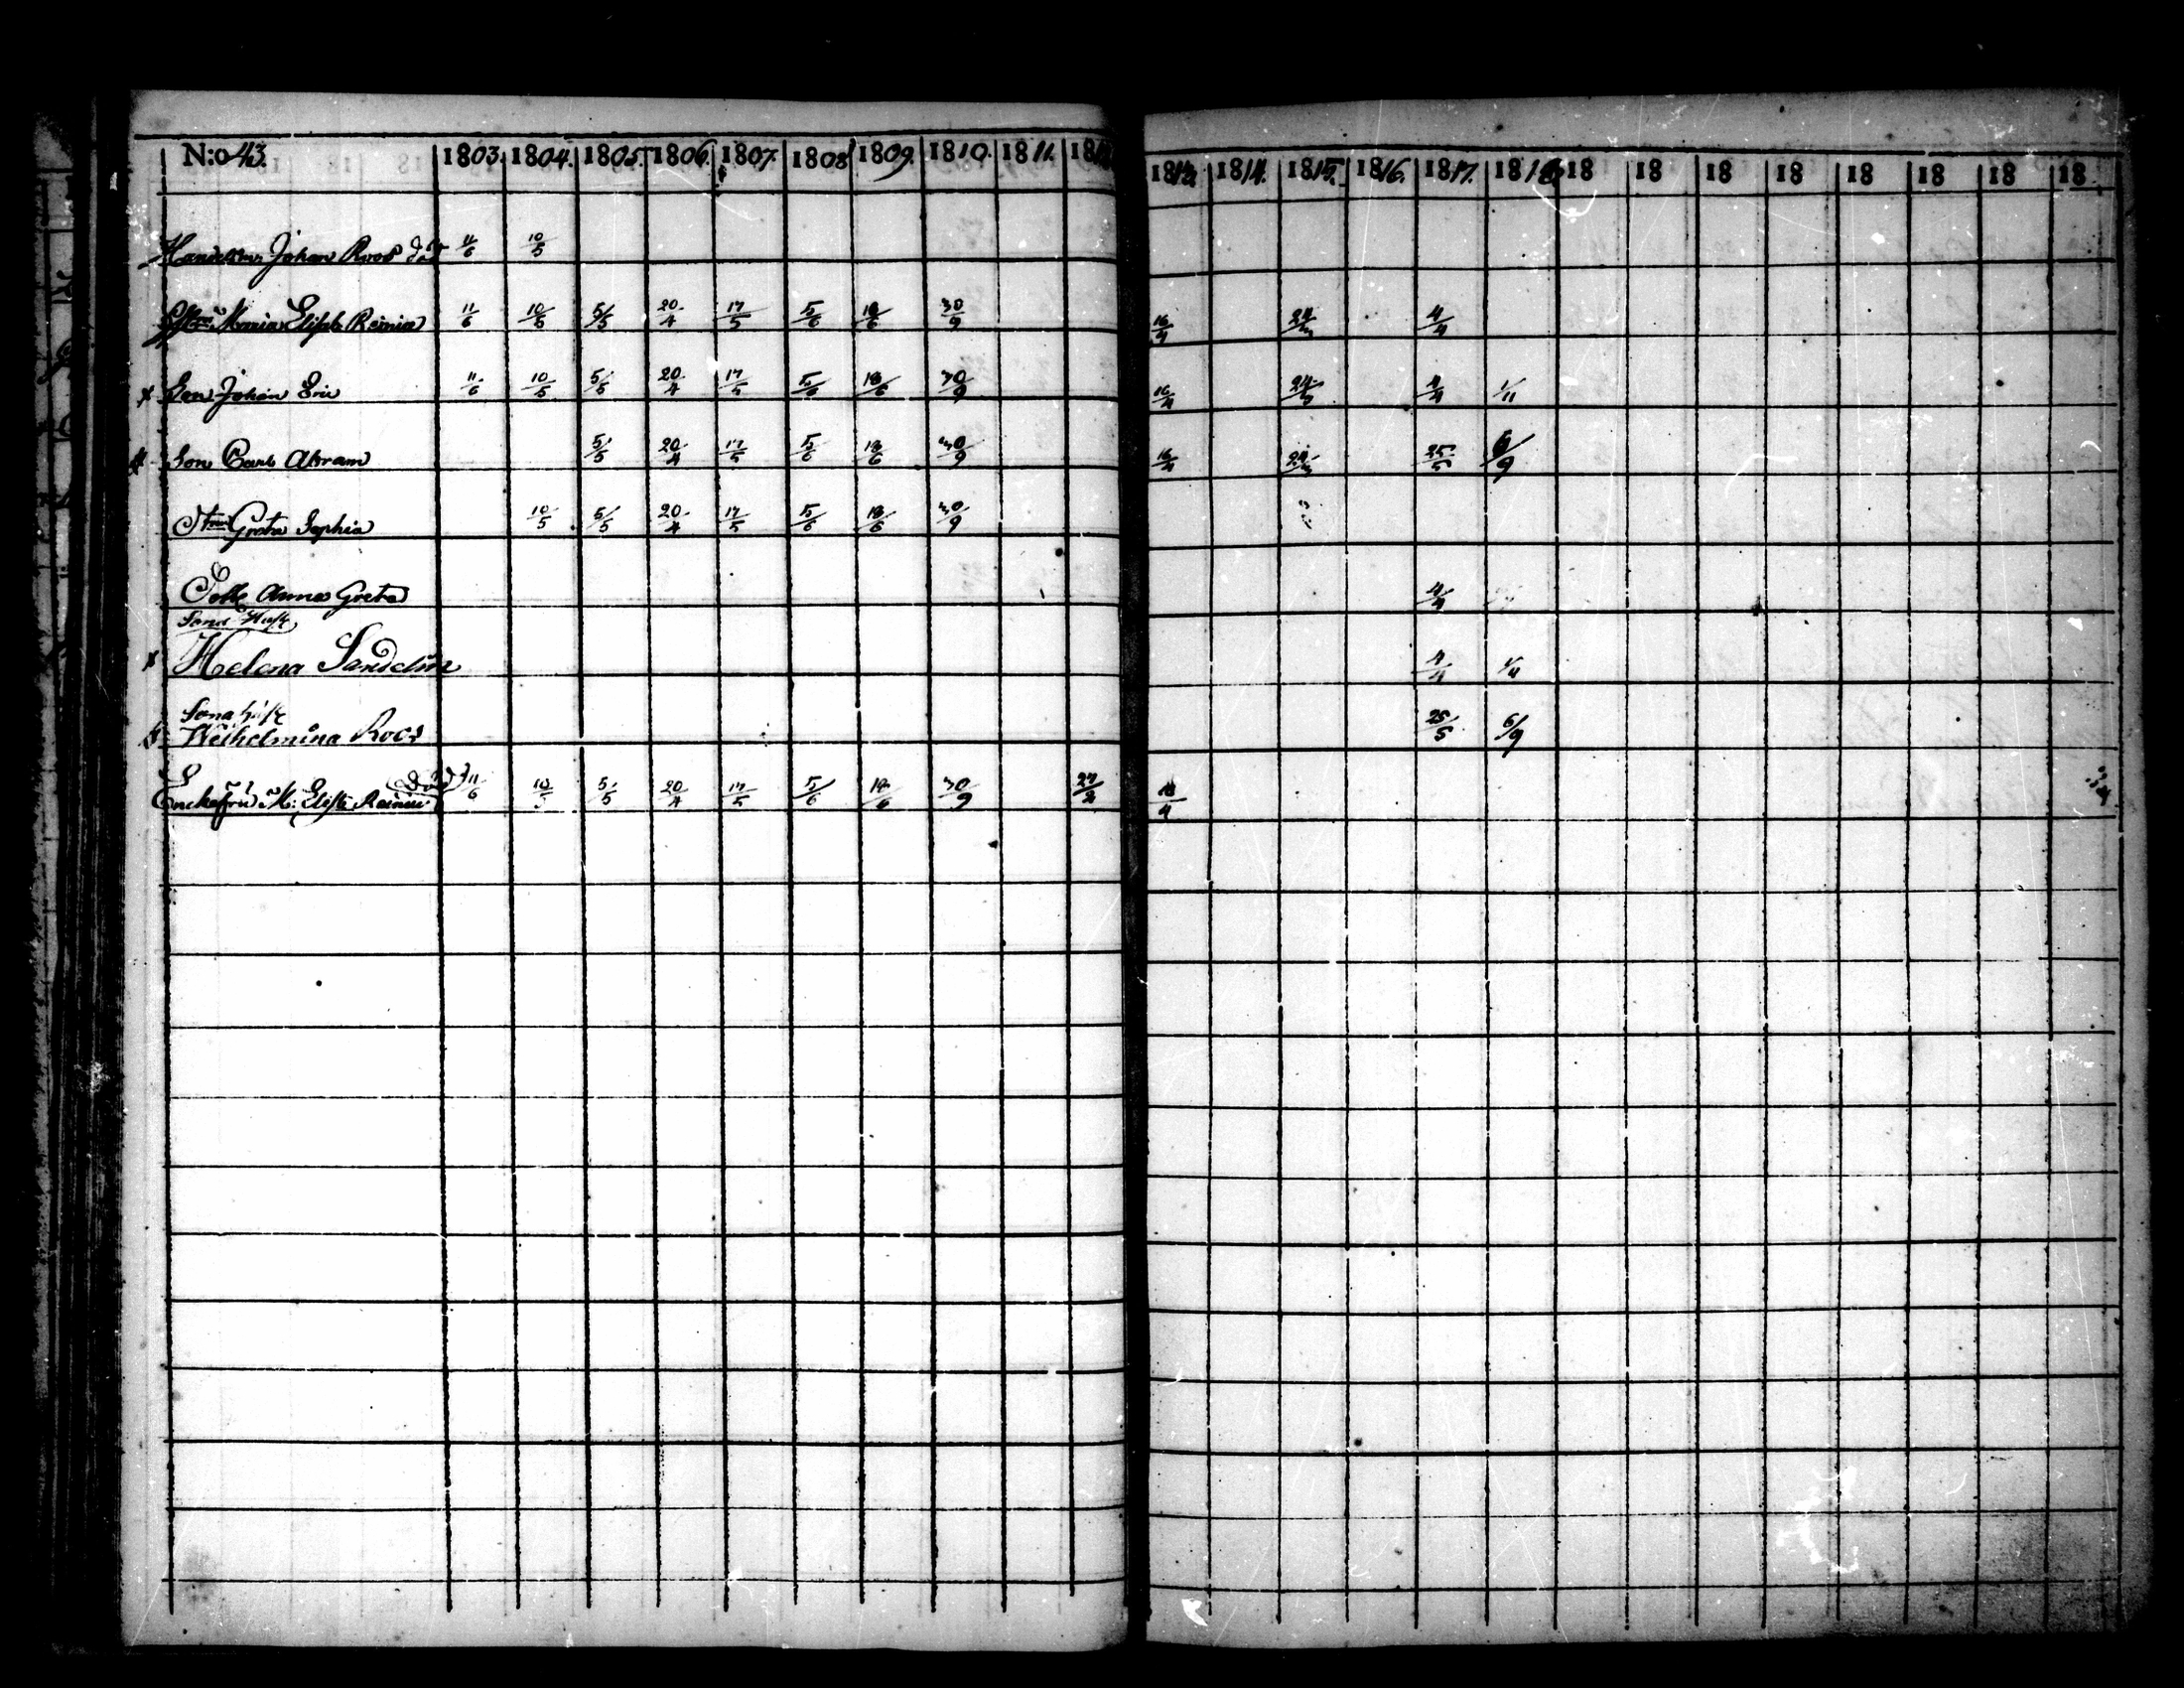 N:o 43. 1803. 1804. 1805. 1806. 1807. 1808 1809. 1810. 1811. 1812 1813. 1814. 1815. 1816. 1817. 1818 18 18 18 18 18 18 18 18
Handelsm. Johan Roos död 11/6 10/5
Maria Elisab. Reinia 11/6 10/5 5/5 20/4 17/5 5/6 18/6 30/9 16/4 24/3 4/4
Son Johan Eric 11/6 10/5 5/5 20/4 17/5 5/6 18/6 30/9 16/4 24/3 4/4 1/11
Son Carl Abram 5/5 20/4 17/5 5/6 18/6 30/9 16/4 24/3 25/5 6/9
Greta Sophia 10/5 5/5 20/4 17/5 5/6 18/6 30/9
Anna Greta 4/4
Sons Hust.
Helena Sandelin 4/4 1/11
Sona hust.
Wilhelmina Roos 25/5 6/9
död
Enckefru M: Elisb. Reinia 11/6 10/5 5/5 20/4 17/5 5/6 18/6 30/9 27/2 18/4